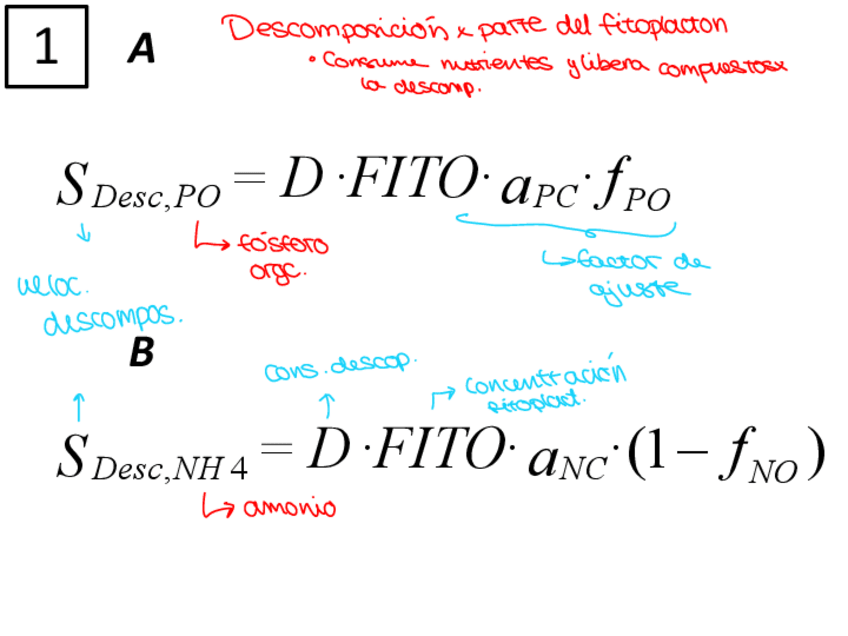 1
A
Descomposición x parte del fitoplacton
• Consume nutrientes y libera compuestos x
la descomp.
S_{Desc,PO} = D · FITO · a_{PC} · f_{PO}
fósforo
orgc.
factor de
ajuste
veloc.
descompos.
B
cons. descop.
concentración
fitoplact.
S_{Desc,NH4} = D · FITO · a_{NC} · (1 − f_{NO})
amonio